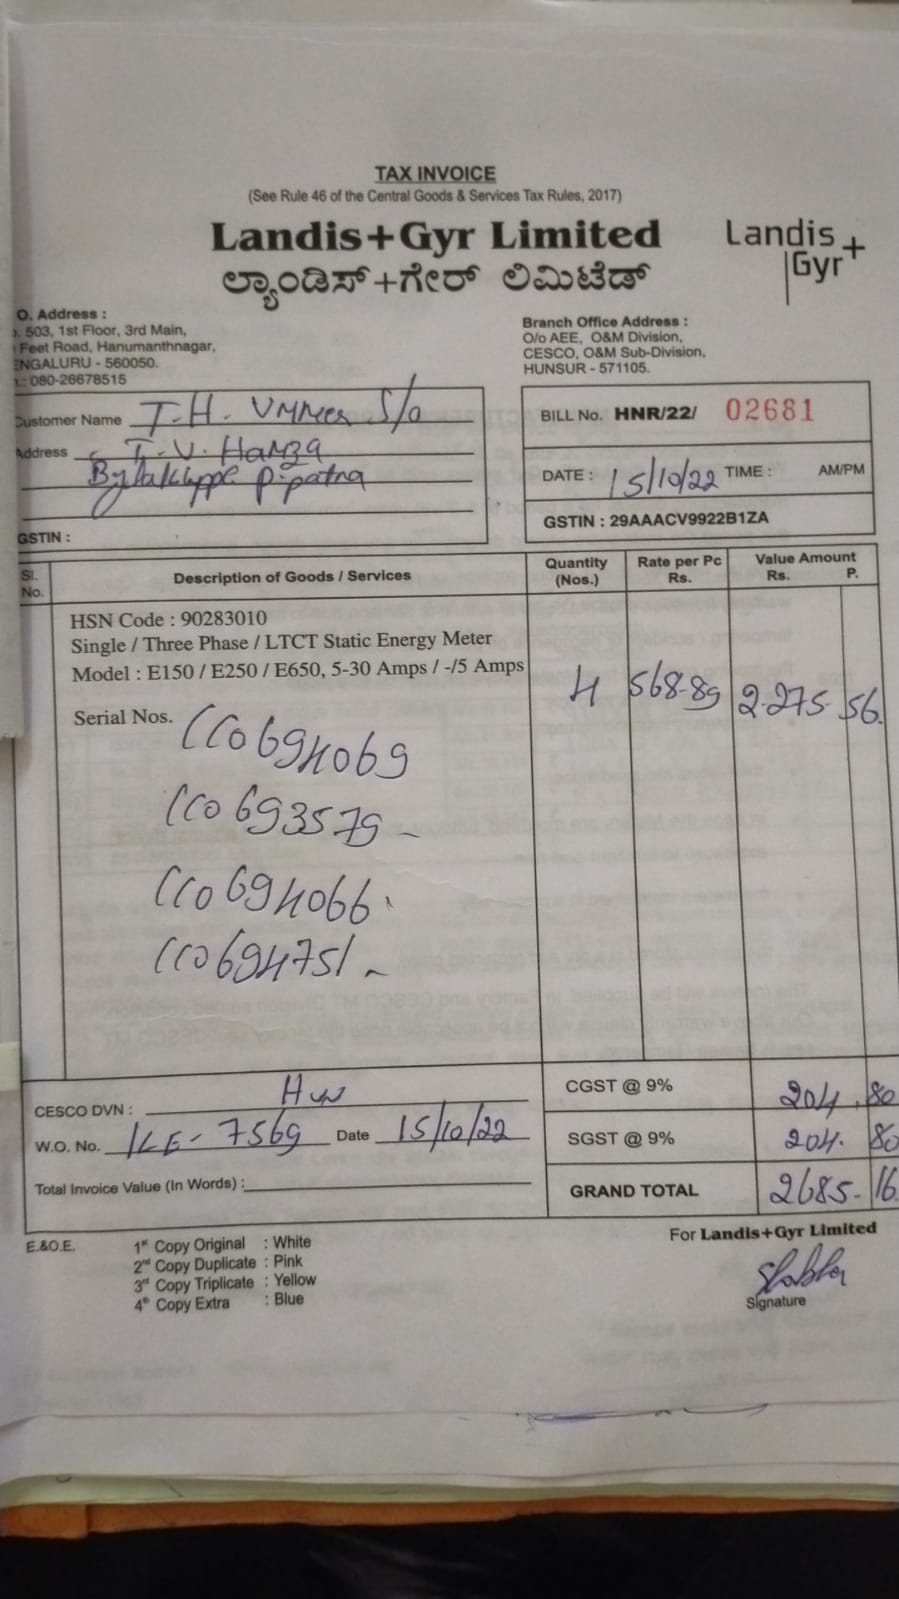 TAX INVOICE
(See Rule 46 of the Central Goods & Services Tax Rules, 2017)
Landis+Gyr Limited
ಲ್ಯಾಂಡಿಸ್+ಗೇರ್ ಲಿಮಿಟೆಡ್
Landis
Gyr+
O. Address :
503, 1st Floor, 3rd Main,
Feet Road, Hanumanthnagar,
ENGALURU - 560050.
: 080-26678515
Branch Office Address :
O/o AEE, O&M Division,
CESCO, O&M Sub-Division,
HUNSUR - 571105.
Customer Name T.H. Ummer S/o
Address T.V. Hamza
Bylakuppe P.patna
GSTIN :
BILL No. HNR/22/ 02681
DATE : 15/10/22 TIME : AM/PM
GSTIN : 29AAACV9922B1ZA
Sl. No. Description of Goods / Services Quantity (Nos.) Rate per Pc Rs. Value Amount Rs. P.
HSN Code : 90283010
Single / Three Phase / LTCT Static Energy Meter
Model : E150 / E250 / E650, 5-30 Amps / -/5 Amps 4 568-89 2.275. 56.
Serial Nos. CC0694069
CC0693579
CC0694066
CC0694751
CESCO DVN :
CGST @ 9% 204.80
W.O. No. 7569 Date 15/10/22
SGST @ 9% 204.80
Total Invoice Value (In Words) :
GRAND TOTAL 2685-16
E.&O.E.
1st Copy Original : White
2nd Copy Duplicate : Pink
3rd Copy Triplicate : Yellow
4th Copy Extra : Blue
For Landis+Gyr Limited
Signature